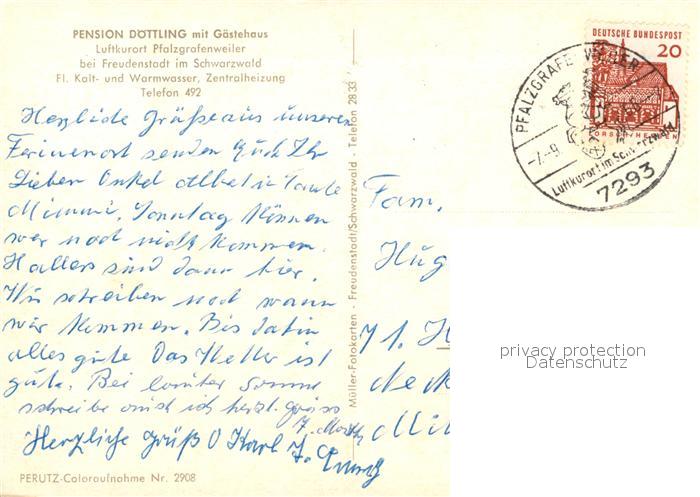 PENSION DÖTTLING mit Gästehaus
Luftkurort Pfalzgrafenweiler
bei Freudenstadt im Schwarzwald
Fl. Kalt- und Warmwasser, Zentralheizung
Telefon 492
Herzliche Grüße aus unserem
Ferienort senden Euch Ihr
Lieben Onkel Tante
Mimmi. Sonntag können
wir noch nicht kommen.
Hallers sind dann hier.
Wir schreiben noch wann
wir kommen. Bis dahin
alles gute Das Wetter ist
gut. Bei lauter Sonne
schreibe auch ich herzl. grüss
Herzliche Grüß O Karl
PERUTZ-Coloraufnahme Nr. 2908
Müller-Fotokarten - Freudenstadt/Schwarzwald - Telefon 2833
DEUTSCHE BUNDESPOST
20
LORSCH/HESSEN
PFALZGRAFENWEILER
-7.-9.
Luftkurort im Schwarzwald
7293
Fam.
Hug
71. H
privacy protection
Datenschutz